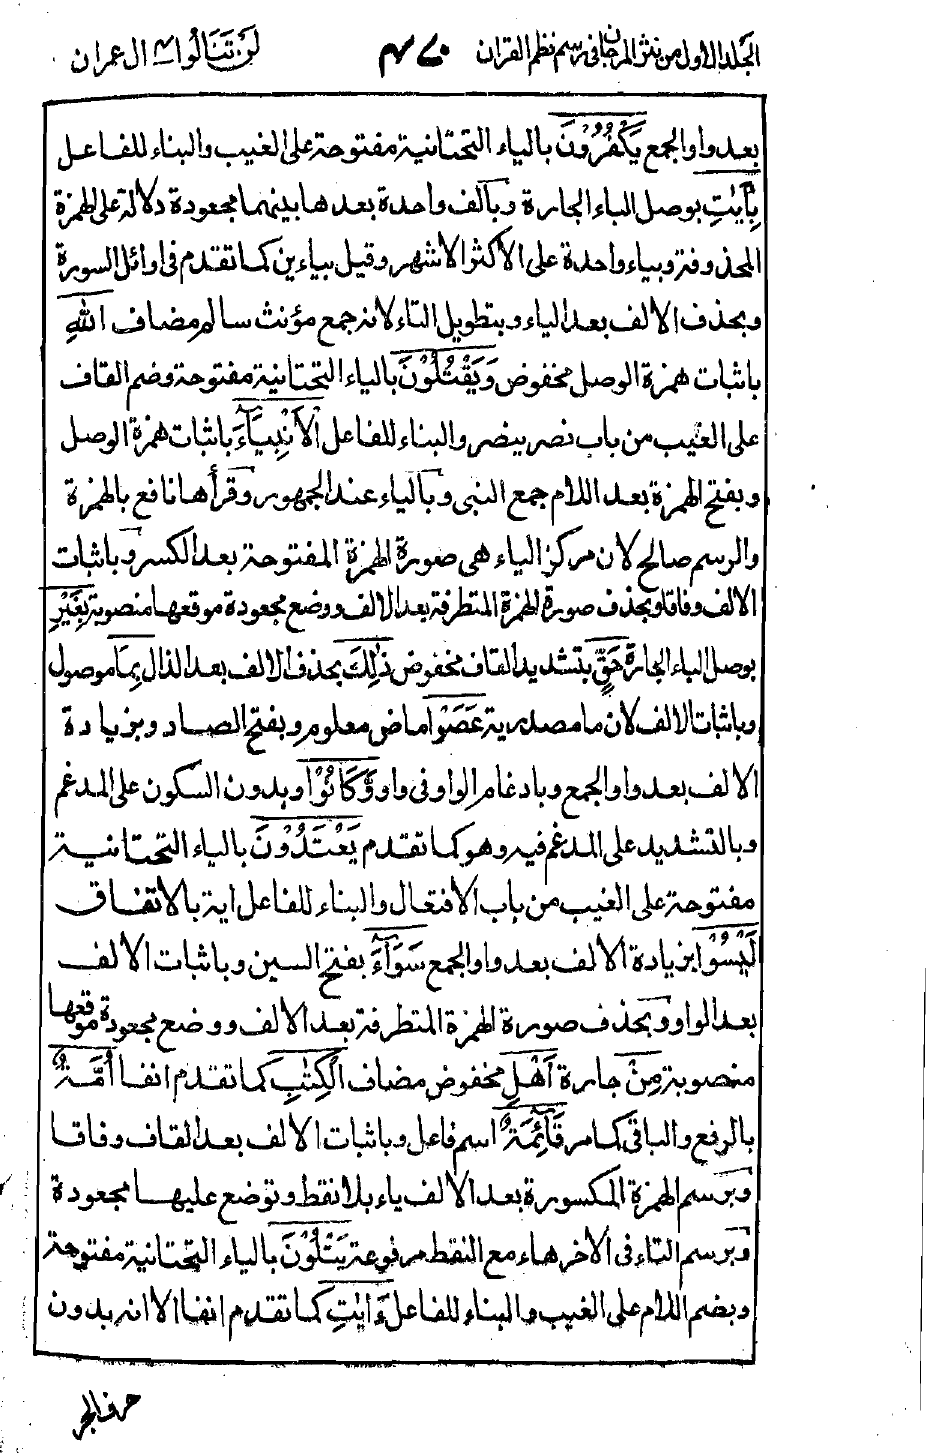 الجلد الاول من نثر المرجان فی رسم نظم القران ٤٧٠ لَنْ تَنَالُوا ٤ ال عمران
بعد واو الجمع يَكْفُرُوْنَ بالياء التحتانية مفتوحة على الغيب والبناء للفاعل
بِاٰيٰتِ بوصل الباء الجارة وبالف واحدة بعدها بينهما مجعودة دلالة على الهمزة
المحذوفة وبياء واحدة على الاكثر الاشهر وقيل بياءين كما تقدم فى اوائل السورة
وبحذف الالف بعد الياء وبتطويل التاء لانه جمع مؤنث سالم مضاف اللّٰهِ
باثبات همزة الوصل مخفوض وَيَقْتُلُوْنَ بالياء التحتانية مفتوحة وضم القاف
على الغيب من باب نصر ينصر والبناء للفاعل الْاَنْبِيَآءَ باثبات همزة الوصل
وبفتح الهمزة بعد اللام جمع النبى وبالياء عند الجمهور وقرأها نافع بالهمزة
والرسم صالح لان مركز الياء هى صورة الهمزة المفتوحة بعد الكسر وباثبات
الالف وفاقا وبحذف صورة الهمزة المتطرفة بعد الالف ووضع مجعودة موقعها منصوبة بِغَيْرِ
بوصل الباء الجارة حَقٍّ بتشديد القاف مخفوض ذٰلِكَ بحذف الالف بعد الذال بِمَا موصول
وباثبات الالف لان ما مصدرية عَصَوْا ماض معلوم وبفتح الصاد وبزيادة
الالف بعد واو الجمع وبادغام الواو فى واو وَّكَانُوْا وبدون السكون على المدغم
وبالتشديد على المدغم فيه وهو كما تقدم يَعْتَدُوْنَ بالياء التحتانية
مفتوحة على الغيب من باب الافتعال والبناء للفاعل اية بالاتفاق
لَيْسُوْا بزيادة الالف بعد واو الجمع سَوَآءً بفتح السين وباثبات الالف
بعد الواو وبحذف صورة الهمزة المتطرفة بعد الالف ووضع مجعودة موقعها
منصوبة مِنْ جارة اَهْلِ مخفوض مضاف الْكِتٰبِ كما تقدم انفا اُمَّةٌ
بالرفع والباقى كما مر قَآئِمَةٌ اسم فاعل وباثبات الالف بعد القاف وفاقا
وبرسم الهمزة المكسورة بعد الالف ياء بلا نقط وتوضع عليها مجعودة
وبرسم التاء فى الاخر هاء مع النقط مرفوعة يَتْلُوْنَ بالياء التحتانية مفتوحة
وبضم اللام على الغيب والبناء للفاعل ءَايٰتِ كما تقدم انفا الا انه بدون
حرف الجر